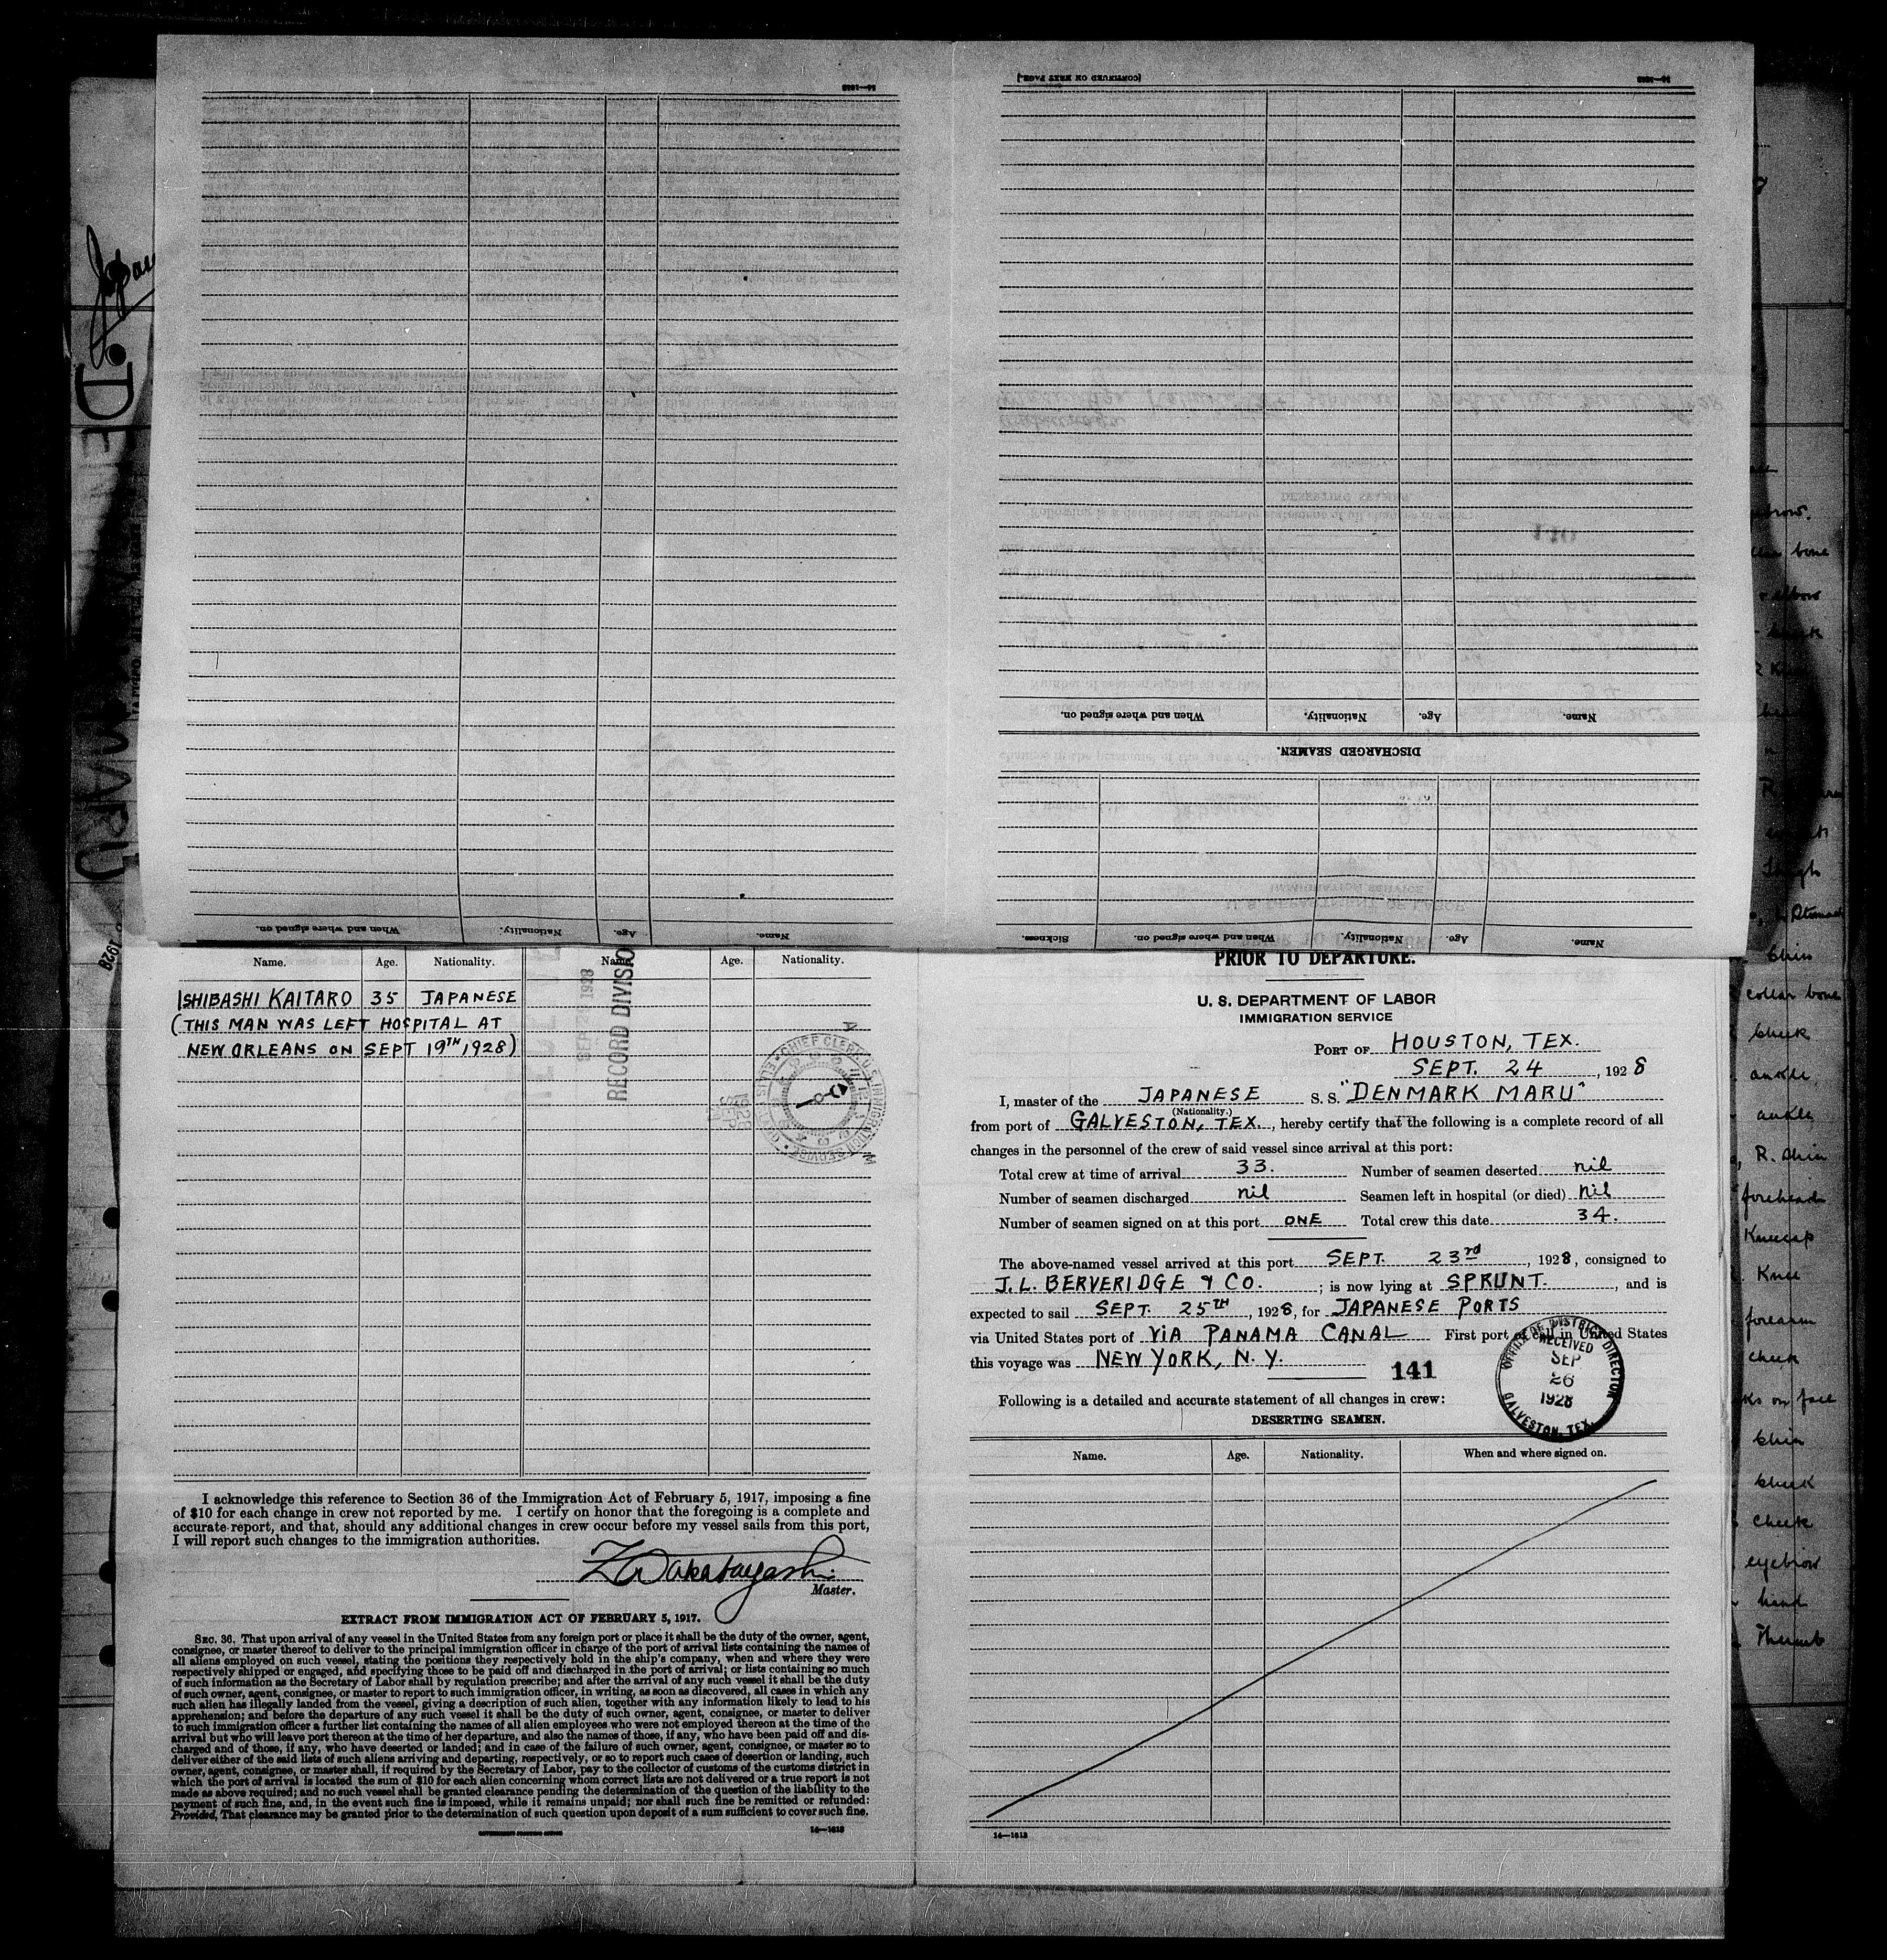 (CONTINUED ON NEXT PAGE.)
14—1613
14—1613
When and where signed on.
Nationality.
Age.
Name.
DISCHARGED SEAMEN.
When and where signed on.
Nationality.
Age.
Name.
Sickness.
When and where signed on.
Nationality.
Age.
Name.
Name. Age. Nationality. Name. Age. Nationality.
ISHIBASHI KAITARO 35 JAPANESE
(THIS MAN WAS LEFT HOSPITAL AT
NEW ORLEANS ON SEPT 19TH, 1928)
RECORD DIVISIO
1928
CHIEF CLERK U.S. IMMIGRATION SERVICE
SEP
1928
I acknowledge this reference to Section 36 of the Immigration Act of February 5, 1917, imposing a fine
of $10 for each change in crew not reported by me. I certify on honor that the foregoing is a complete and
accurate report, and that, should any additional changes in crew occur before my vessel sails from this port,
I will report such changes to the immigration authorities.
Z Wakabayashi
Master.
EXTRACT FROM IMMIGRATION ACT OF FEBRUARY 5, 1917.
SEC. 36. That upon arrival of any vessel in the United States from any foreign port or place it shall be the duty of the owner, agent,
consignee, or master thereof to deliver to the principal immigration officer in charge of the port of arrival lists containing the names of
all aliens employed on such vessel, stating the positions they respectively hold in the ship's company, when and where they were
respectively shipped or engaged, and specifying those to be paid off and discharged in the port of arrival; or lists containing so much
of such information as the Secretary of Labor shall by regulation prescribe; and after the arrival of any such vessel it shall be the duty
of such owner, agent, consignee, or master to report to such immigration officer, in writing, as soon as discovered, all cases in which any
such alien has illegally landed from the vessel, giving a description of such alien, together with any information likely to lead to his
apprehension; and before the departure of any such vessel it shall be the duty of such owner, agent, consignee, or master to deliver
to such immigration officer a further list containing the names of all alien employees who were not employed thereon at the time of the
arrival but who will leave port thereon at the time of her departure, and also the names of those, if any, who have been paid off and dis-
charged and of those, if any, who have deserted or landed; and in case of the failure of such owner, agent, consignee, or master so to
deliver either of the said lists of such aliens arriving and departing, respectively, or so to report such cases of desertion or landing, such
owner, agent, consignee, or master shall, if required by the Secretary of Labor, pay to the collector of customs of the customs district in
which the port of arrival is located the sum of $10 for each alien concerning whom correct lists are not delivered or a true report is not
made as above required; and no such vessel shall be granted clearance pending the determination of the question of the liability to the
payment of such fine, and, in the event such fine is imposed, while it remains unpaid; nor shall such fine be remitted or refunded:
Provided, That clearance may be granted prior to the determination of such question upon deposit of a sum sufficient to cover such fine.
GOVERNMENT PRINTING OFFICE
14—1613
PRIOR TO DEPARTURE.
U. S. DEPARTMENT OF LABOR
IMMIGRATION SERVICE
PORT OF HOUSTON, TEX.
SEPT. 24, 1928
I, master of the JAPANESE S. S. "DENMARK MARU"
(Nationality.)
from port of GALVESTON, TEX., hereby certify that the following is a complete record of all
changes in the personnel of the crew of said vessel since arrival at this port:
Total crew at time of arrival 33. Number of seamen deserted nil
Number of seamen discharged nil Seamen left in hospital (or died) nil
Number of seamen signed on at this port ONE Total crew this date 34.
The above-named vessel arrived at this port SEPT. 23rd, 1928, consigned to
J. L. BERVERIDGE & CO. ; is now lying at SPRUNT. , and is
expected to sail SEPT. 25TH, 1928, for JAPANESE PORTS
via United States port of VIA PANAMA CANAL First port of call in United States
this voyage was NEW YORK, N. Y.
141
OFFICE OF DISTRICT DIRECTOR
RECEIVED
SEP
26
1928
GALVESTON, TEX.
Following is a detailed and accurate statement of all changes in crew:
DESERTING SEAMEN.
Name. Age. Nationality. When and where signed on.
14—1613
collar bone
cheek
ankle
ankle
R. Chin
forehead
Kneecap
Knee
forearm
cheek
ks on face
Chin
Cheek
Cheek
eyebrow
hand
Thumb